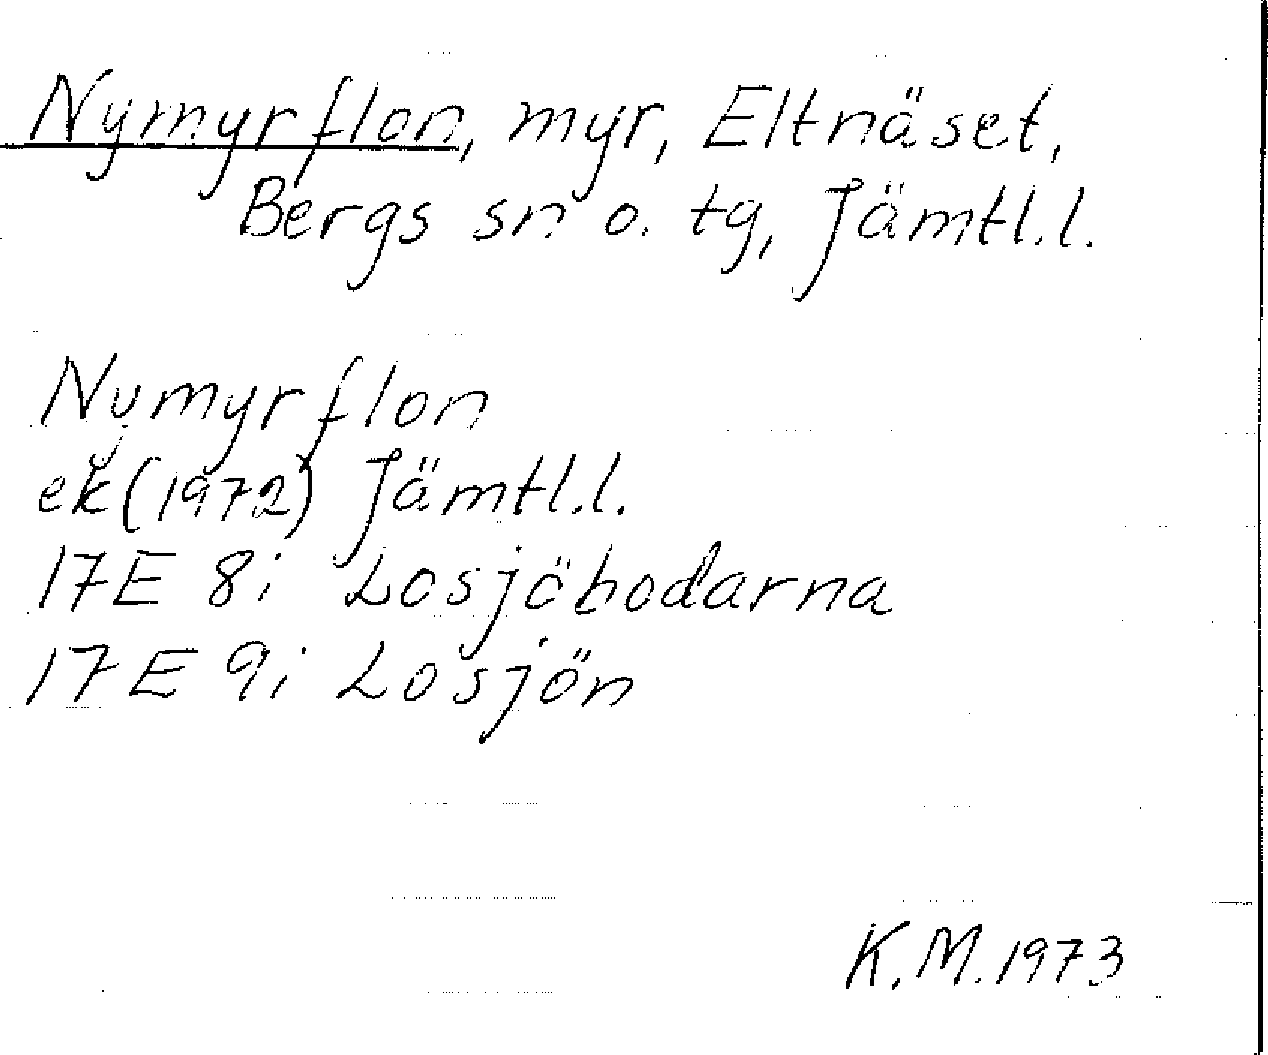 Nymyrflon, myr, Eltnäset,
Bergs sn o. tg, Jämtl.l.
Nymyrflon
ek(1972) Jämtl.l.
17E 8i Losjöbodarna
17E 9i Losjön
K.M.1973